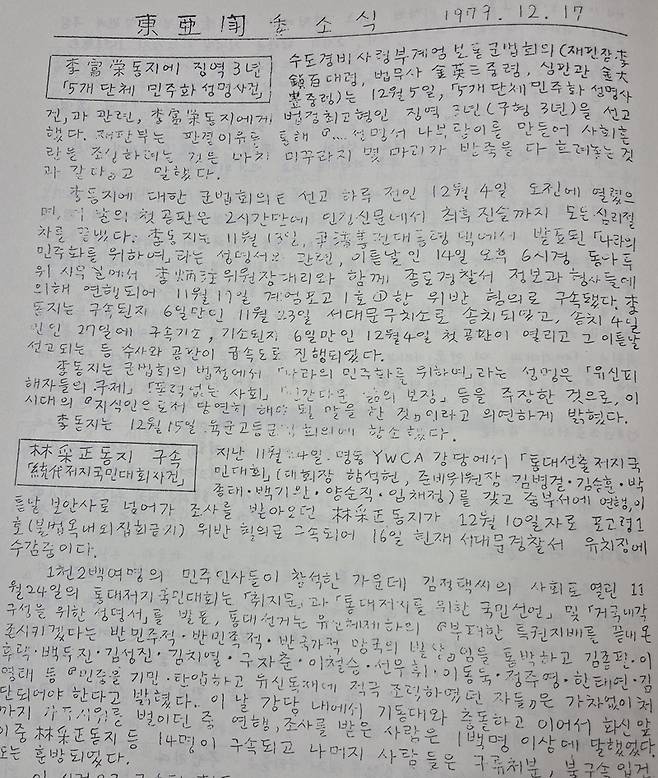 東亞鬪委소식 1979. 12. 17
李富榮동지에 징역 3년
「5개 단체 민주화 성명사건」
수도경비사령부계엄보통군법회의 (재판장·李
鎭百대령, 법무사 金英三중령, 심판관 金大
중령)는 12월 5일, 「5개 단체 민주화 성명사
건」과 관련, 李富榮동지에게 법정최고형인 징역 3년(구형 3년)을 선고
했다. 재판부는 판결이유를 통해 『...성명서 나부랭이를 만들어 사회혼
란을 조성하려는 것은 마치 미꾸라지 몇 마리가 반죽을 다 흐려놓는 것
과 같다』고 말했다.
李동지에 대한 군법회의는 선고 하루 전인 12월 4일 오전에 열렸으
며, 이 날의 첫 공판은 2시간만에 인정신문에서 최후진술까지 모든 심리절
차를 끝냈다. 李동지는 11월 13일, 尹潽善전대통령 댁에서 발표된 「나라의
민주화를 위하여」라는 성명서와 관련, 이튿날인 14일 오후 6시경 동아투
위 사무실에서 李炳注위원장대리와 함께 종로경찰서 정보과 형사들에
의해 연행되어 11월 17일 계엄포고 1호 ①항 위반 혐의로 구속됐다. 李
동지는 구속된지 6일만인 11월 23일 서대문구치소로 송치되었고, 송치 4일
만인 27일에 구속기소, 기소된지 6일만인 12월 4일 첫 공판이 열리고 그 이튿날
선고되는 등 수사와 공판이 급속도로 진행되었다.
李동지는 군법회의 법정에서 「나라의 민주화를 위하여」라는 성명은 「유신피
해자들의 구제」 「폭력없는 사회」 「인간다운 삶의 보장」 등을 주장한 것으로, 이
시대의 『지식인으로서 당연히 해야 될 말을 한 것』이라고 의연하게 밝혔다.
李동지는 12월 15일 육군고등군법회의에 항소했다.
林采正동지 구속
「統代저지국민대회사건」
지난 11월 24일 명동 YWCA 강당에서 「통대선출저지국
민대회」(대회장 함석헌, 준비위원장 김병걸·김승훈·박
종태·백기완·양순직·임채정)를 갖고 중부서에 연행, 이
튿날 보안사로 넘어가 조사를 받아오던 林采正동지가 12월 10일자로 포고령 1
호 (불법옥내외집회금지) 위반 혐의로 구속되어 16일 현재 서대문경찰서 유치장에
수감중이다.
1천2백여명의 민주인사들이 참석한 가운데 김정택씨의 사회로 열린 11
월 24일의 통대저지국민대회는 「취지문」과 「통대저지를 위한 국민선언」 및 「거국내각
구성을 위한 성명서」를 발표, 통대선거는 유신체제하의 『부패한 특권지배를 끝내 온
존시키겠다는 반민주적·반민족적·반국가적 망국의 발상』임을 통박하고 김종필·이
후락·백두진·김성진·김치열·구자춘·이철승·선우휘·이동욱·정주영·한태연·김
영태 등 『민중을 기만·탄압하고 유신독재에 적극 조력하였던 자들』은 가차없이 처
단되어야 한다고 밝혔다. 이 날 강당 내에서 기동대와 충돌하고 이어서 화신앞
까지 가두시위를 벌이던 중 연행, 조사를 받은 사람은 1백명 이상에 달했었다.
이중 林采正동지 등 14명이 구속되고 나머지 사람들은 구류처분, 불구속입건
또는 훈방되었다.